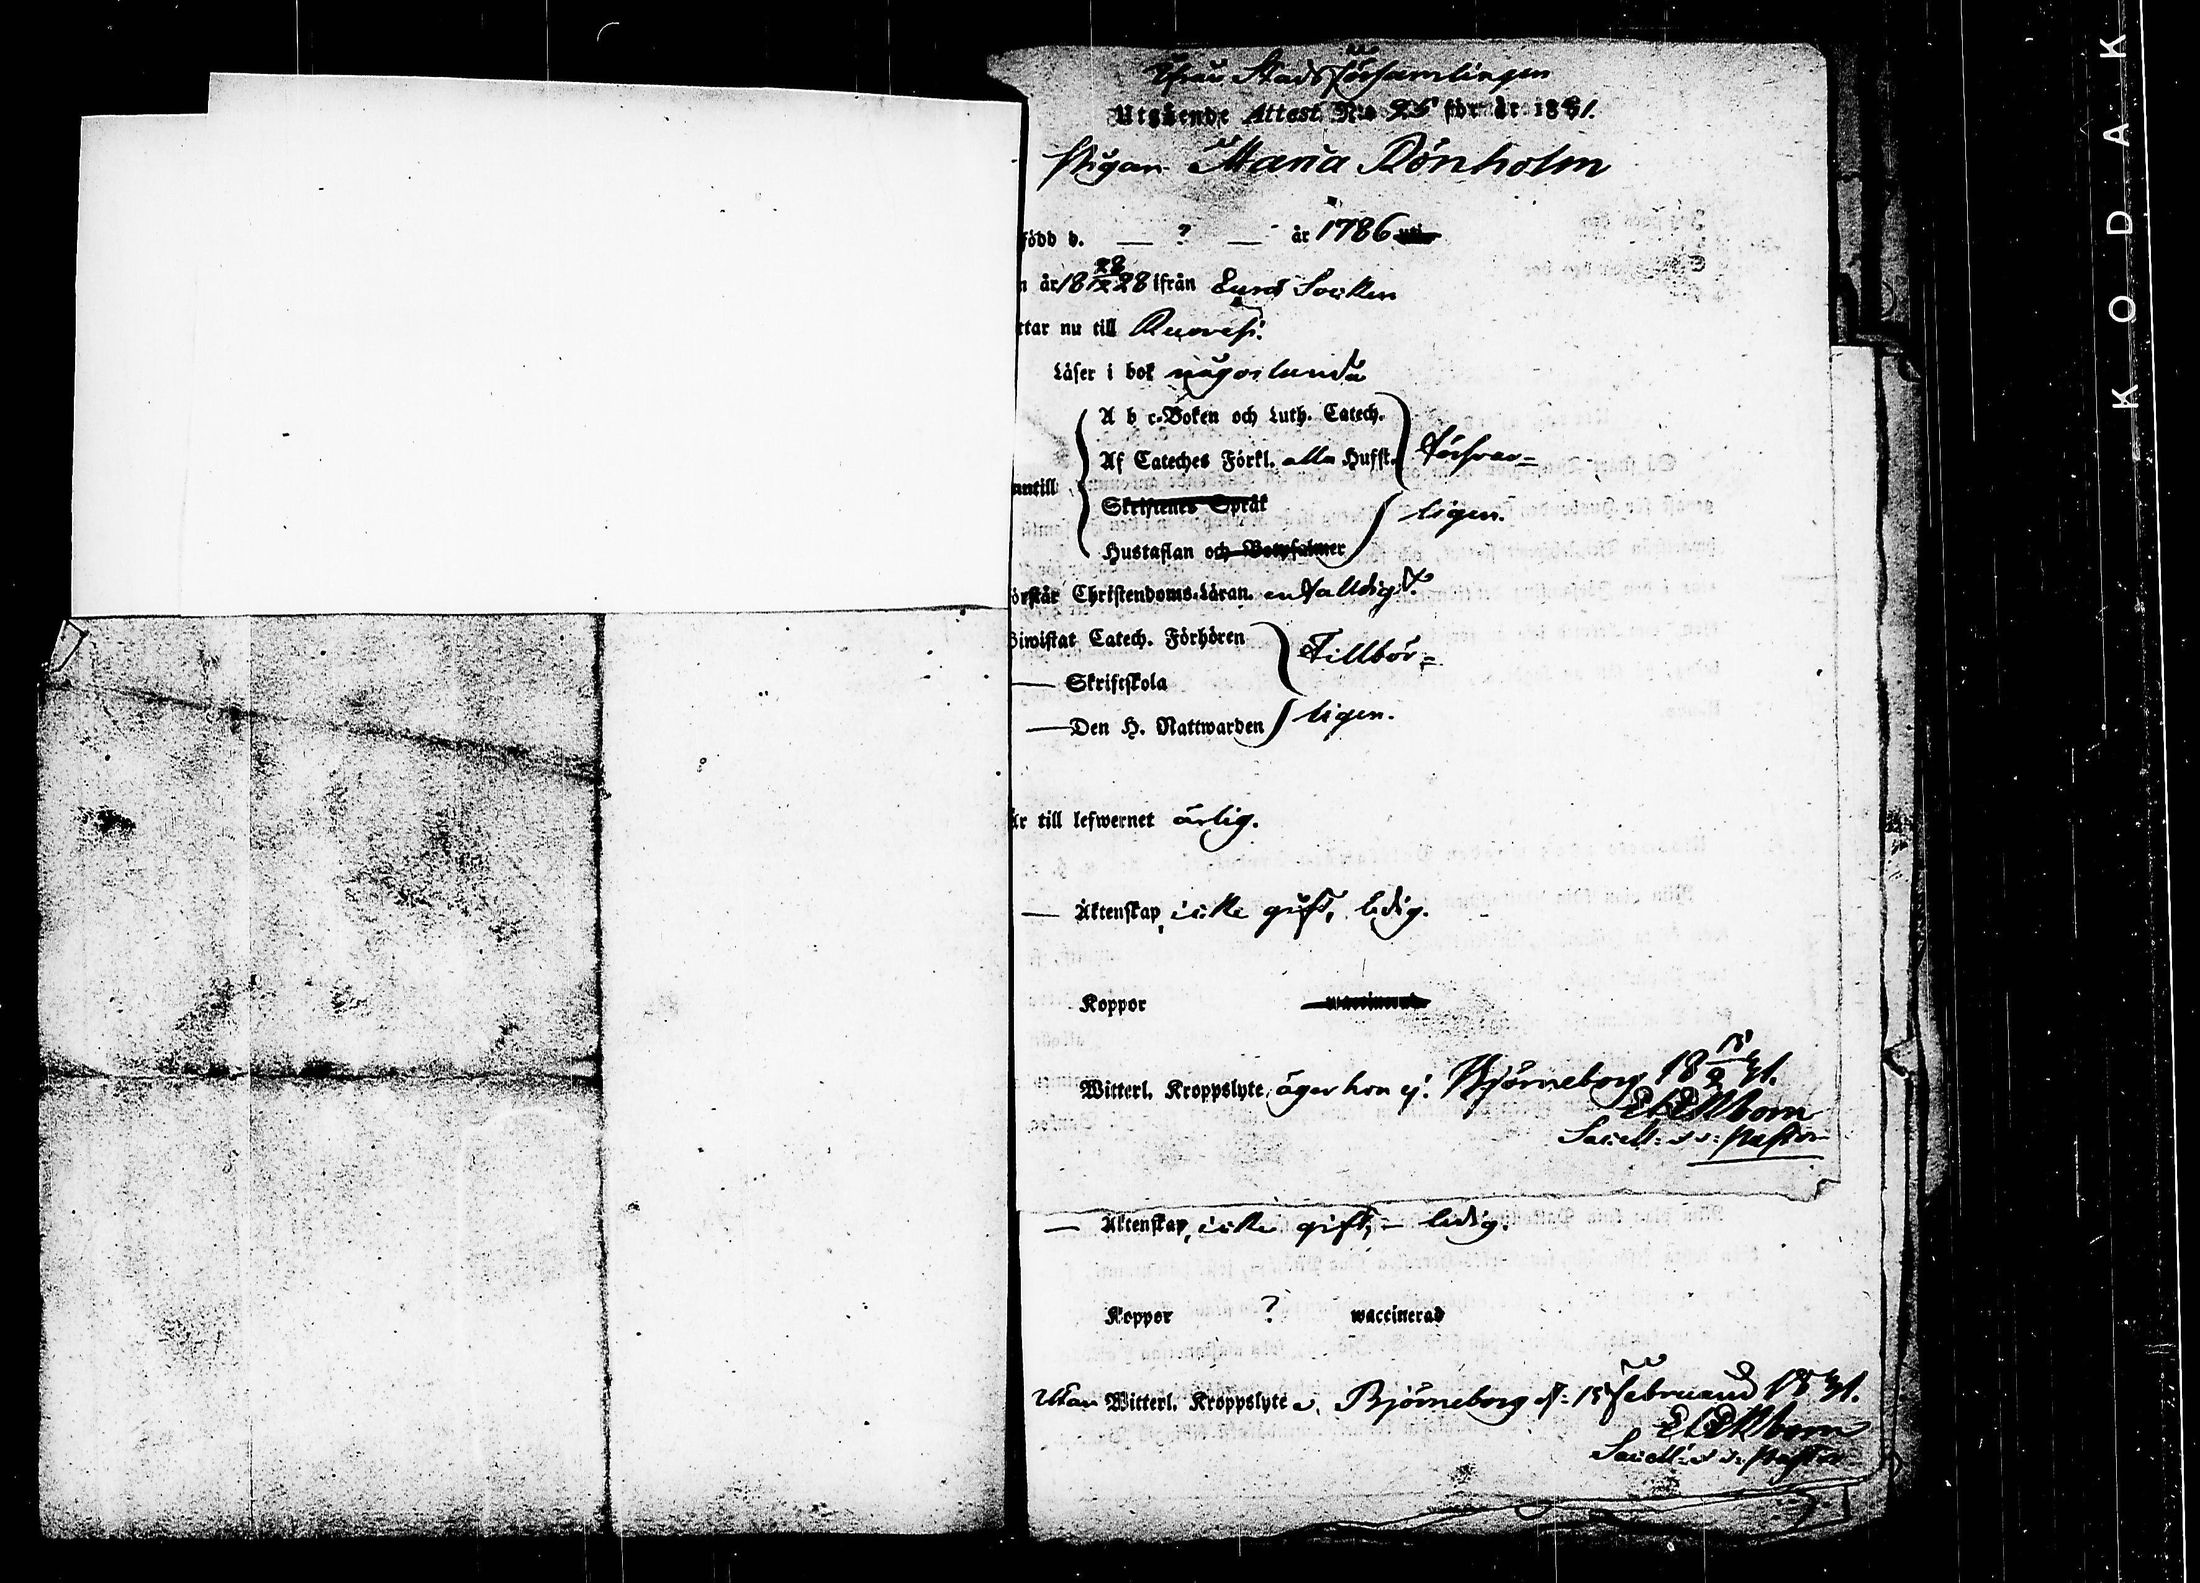 ifrån Stadsförsamlingen
Utgående Attest N:o 25 för år 1831.
Pigan Maria Rönholm
född d. — ? — år 1786
n år 18 28/12 28 ifrån Eura Socken
ttar nu till Ruovesi.
Läser i bok någorlunda
A b c-Boken och Luth. Catech.
Af Cateches Förkl. alla Hufst. försvar=
nntill
Skriftenes Språk
ligen.
Hustaflan och Botpsalmer
örstår Christendoms-Läran. enfaldigt.
Biwistat Catech. Förhören Tillbör=
— Skriftskola
— Den H. Nattwarden ligen.
Är till lefwernet ärlig.
— Äktenskap, icke gift, ledig.
Koppor waccinerad
Witterl. Kroppslyte, äger hon ej. Björneborg 18 15/2 31.
Pastor
— Äktenskap, icke gift, – ledig.
Koppor ? waccinerad
Utan Witterl. Kroppslyte, Björneborg d: 15 Februarii 1831.
Pastor
KODAK